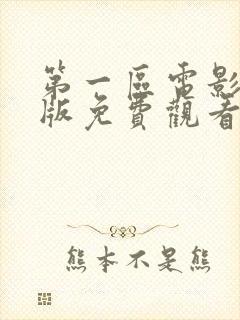 第一區電影
版免費觀看
熊本不是熊